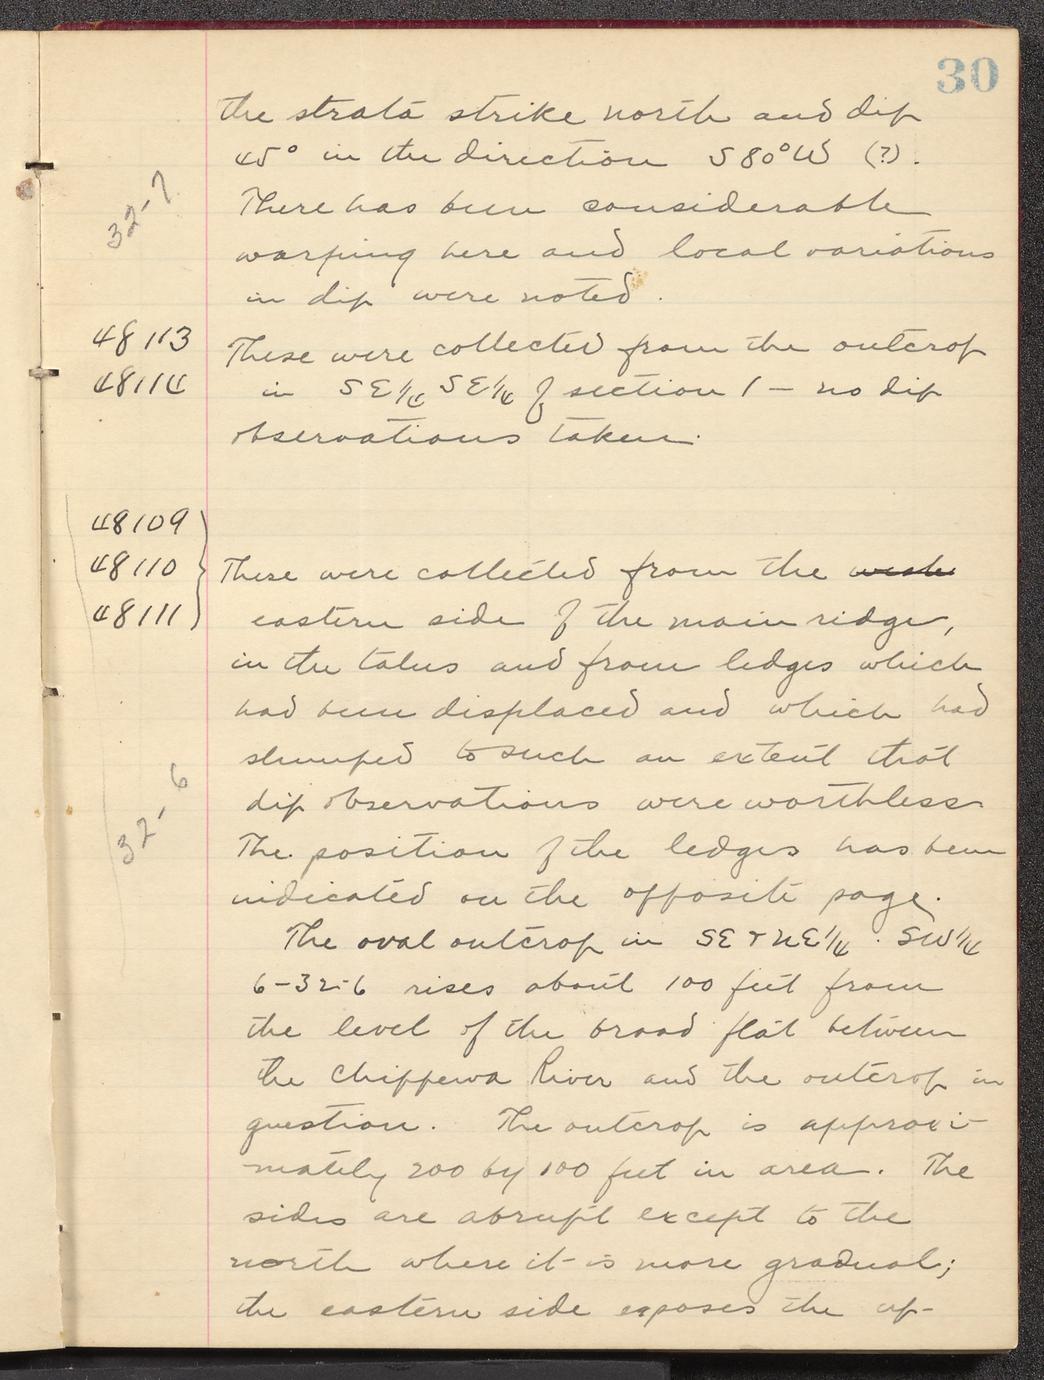 30
the strata strike north and dip
45° in the direction S80°W (?).
32-7
There has been considerable
warping here and local variations
in dip were noted.
48113
These were collected from the outcrop
48114
in SE¼ SE¼ of section 1 - no dip
observations taken.
48109
48110
These were collected from the
48111
eastern side of the main ridge,
in the talus and from ledges which
had been displaced and which had
slumped to such an extent that
dip observations were worthless
32-6
The position of the ledges has been
indicated on the opposite page.
The oval outcrop in SE + NE¼ · SW¼
6-32-6 rises about 100 feet from
the level of the broad flat between
the Chippewa River and the outcrop in
question. The outcrop is approxi-
mately 200 by 100 feet in area. The
sides are abrupt except to the
north where it is more gradual;
the eastern side exposes the up-